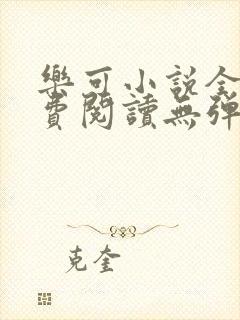 樂可小説全
費閱讀無彈
克奎